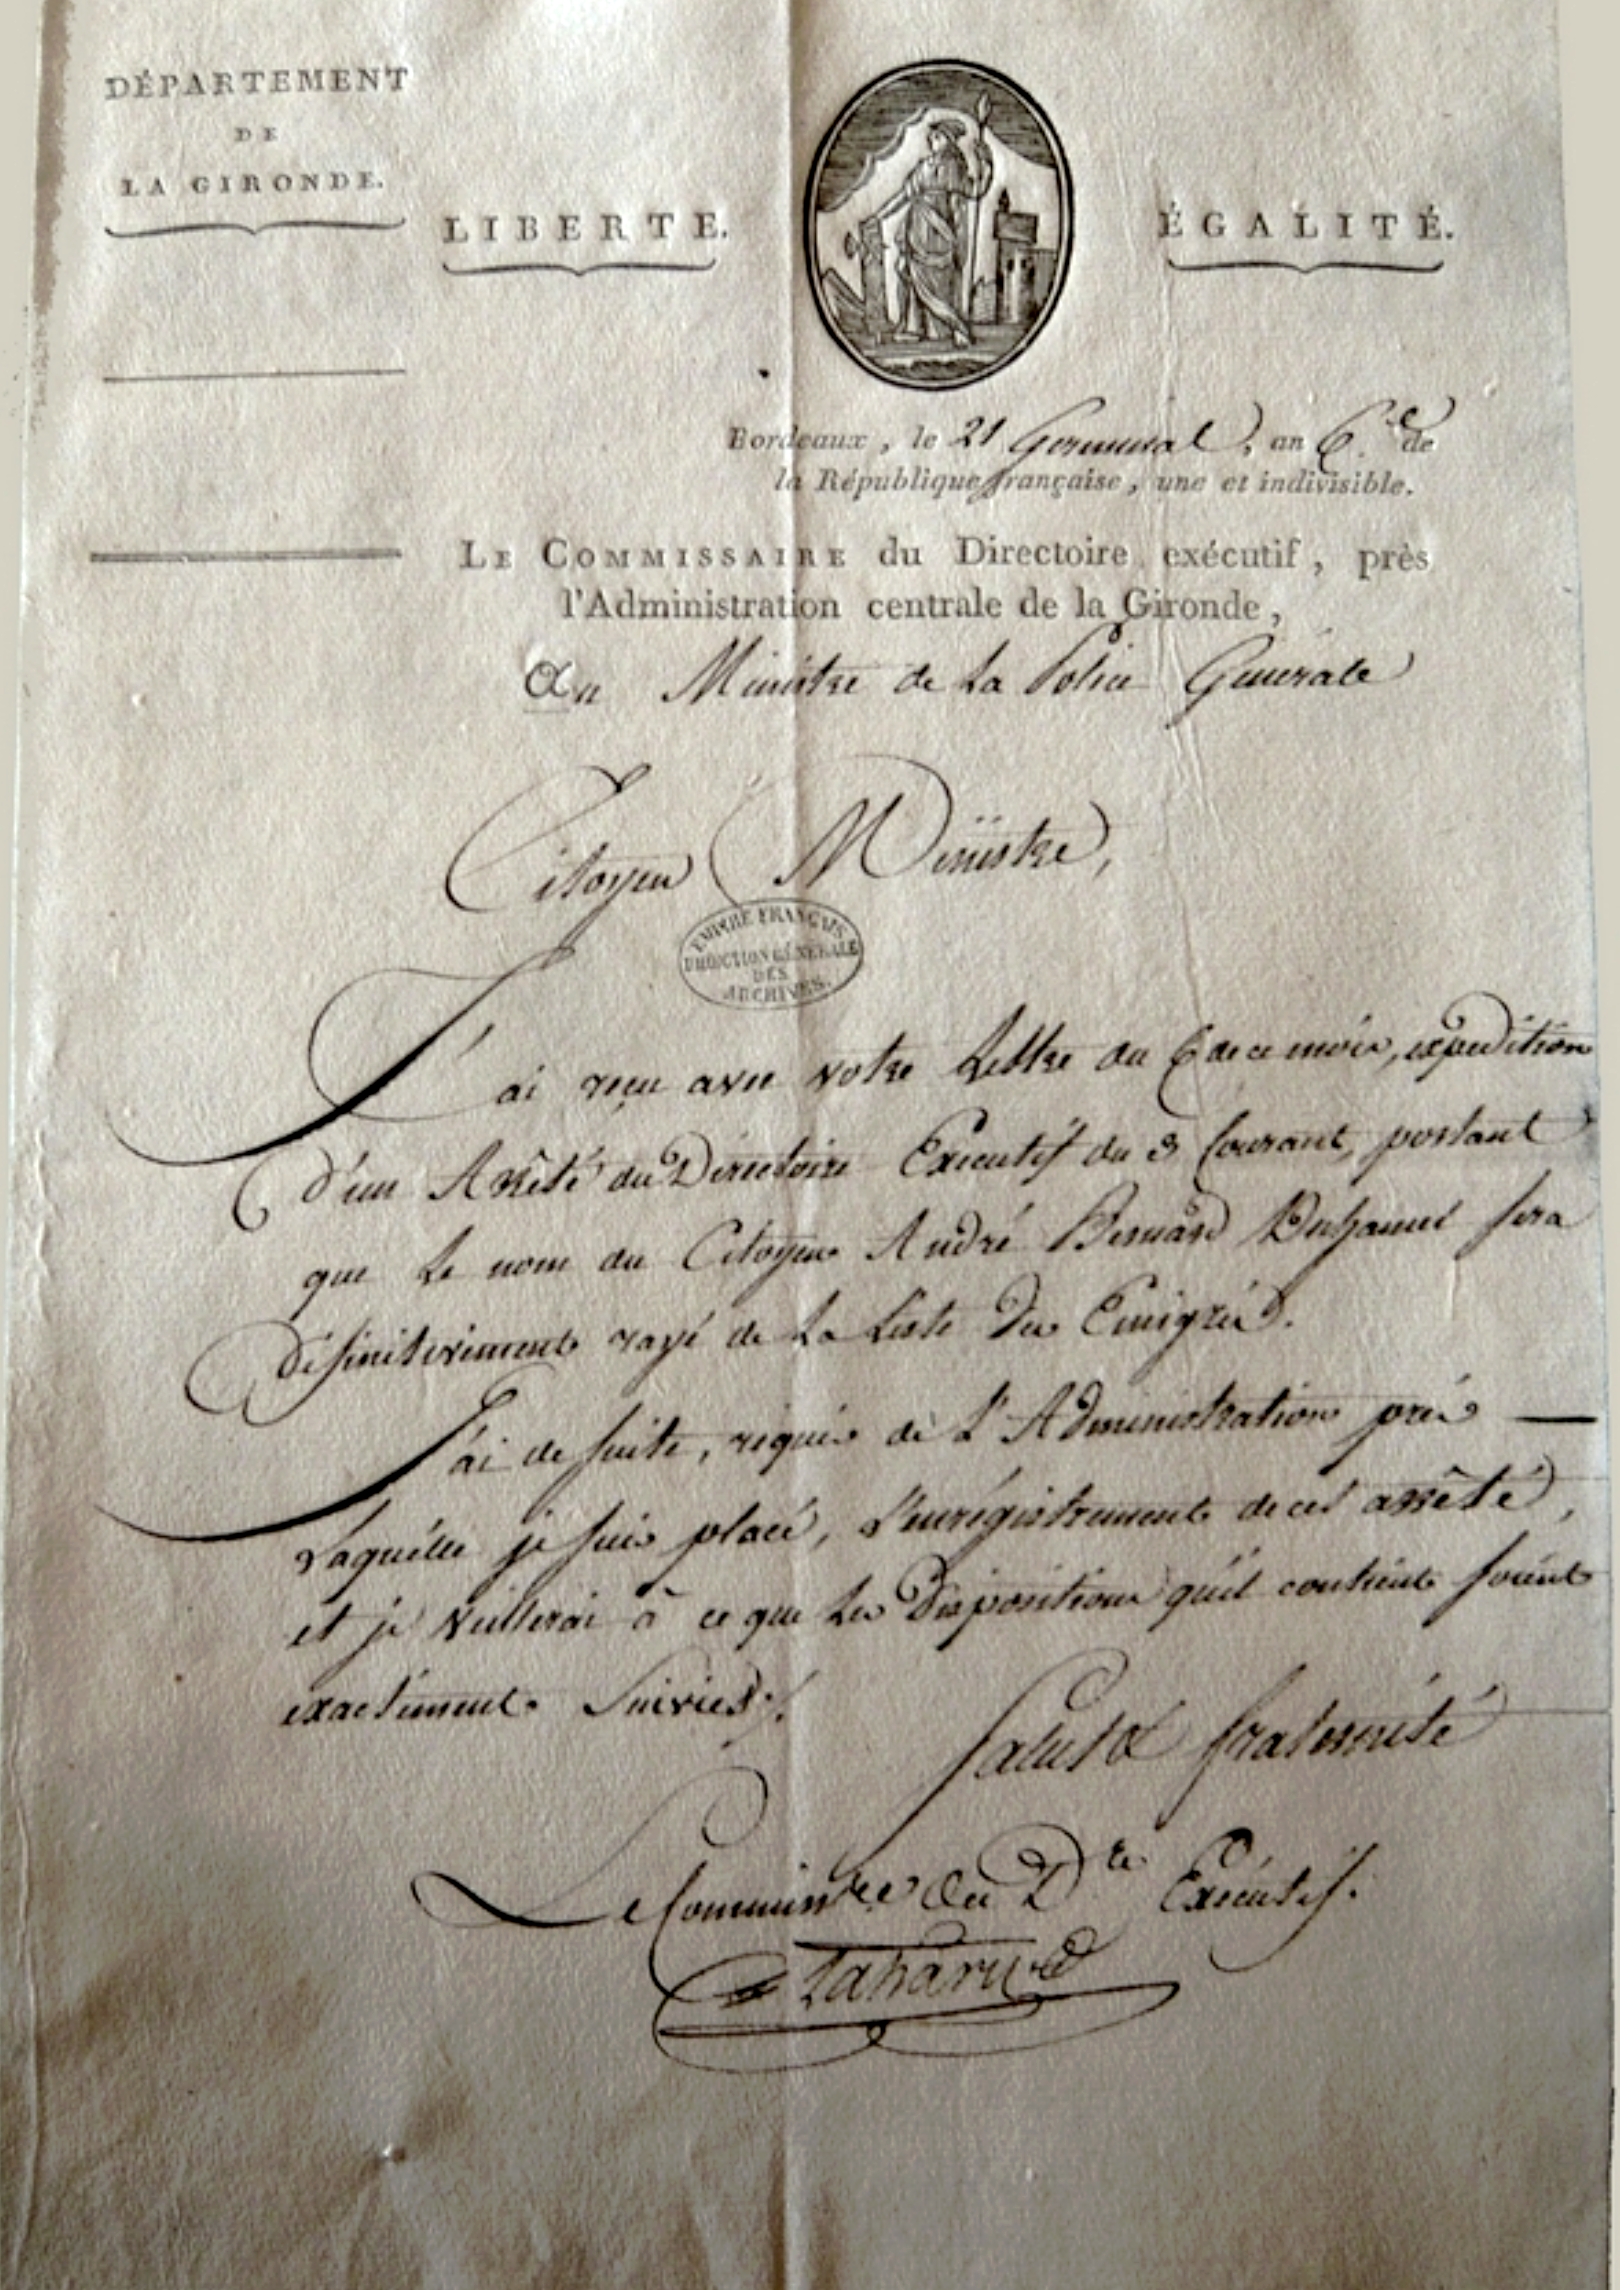 DÉPARTEMENT
DE
LA GIRONDE.
LIBERTE.
ÉGALITÉ.
Bordeaux, le 21 Germinal, an 6.e de
la République française, une et indivisible.
LE COMMISSAIRE du Directoire exécutif, près
l'Administration centrale de la Gironde,
Au Ministre de la Police Générale
Citoyen Ministre,
EMPIRE FRANÇAIS
DIRECTION GÉNÉRALE
DES
ARCHIVES.
J'ai reçu avec votre Lettre du 6 de ce mois, expedition
d'un Arrêté du Directoire Executif du 3 Courant, portant
que Le nom du Citoyen André Bernard Duhamel sera
définitivement rayé de La Liste des Emigrés.
J'ai de suite, réquis de L'Administration prés
Laquélle je suis placé, L'enrégistrement de cet arrêté,
et je veillerai à ce que Les Dispositions qu'il contient soient
exactement Suivies./.
Salut & fraternité
Le Commissre du Dre Exécutif.